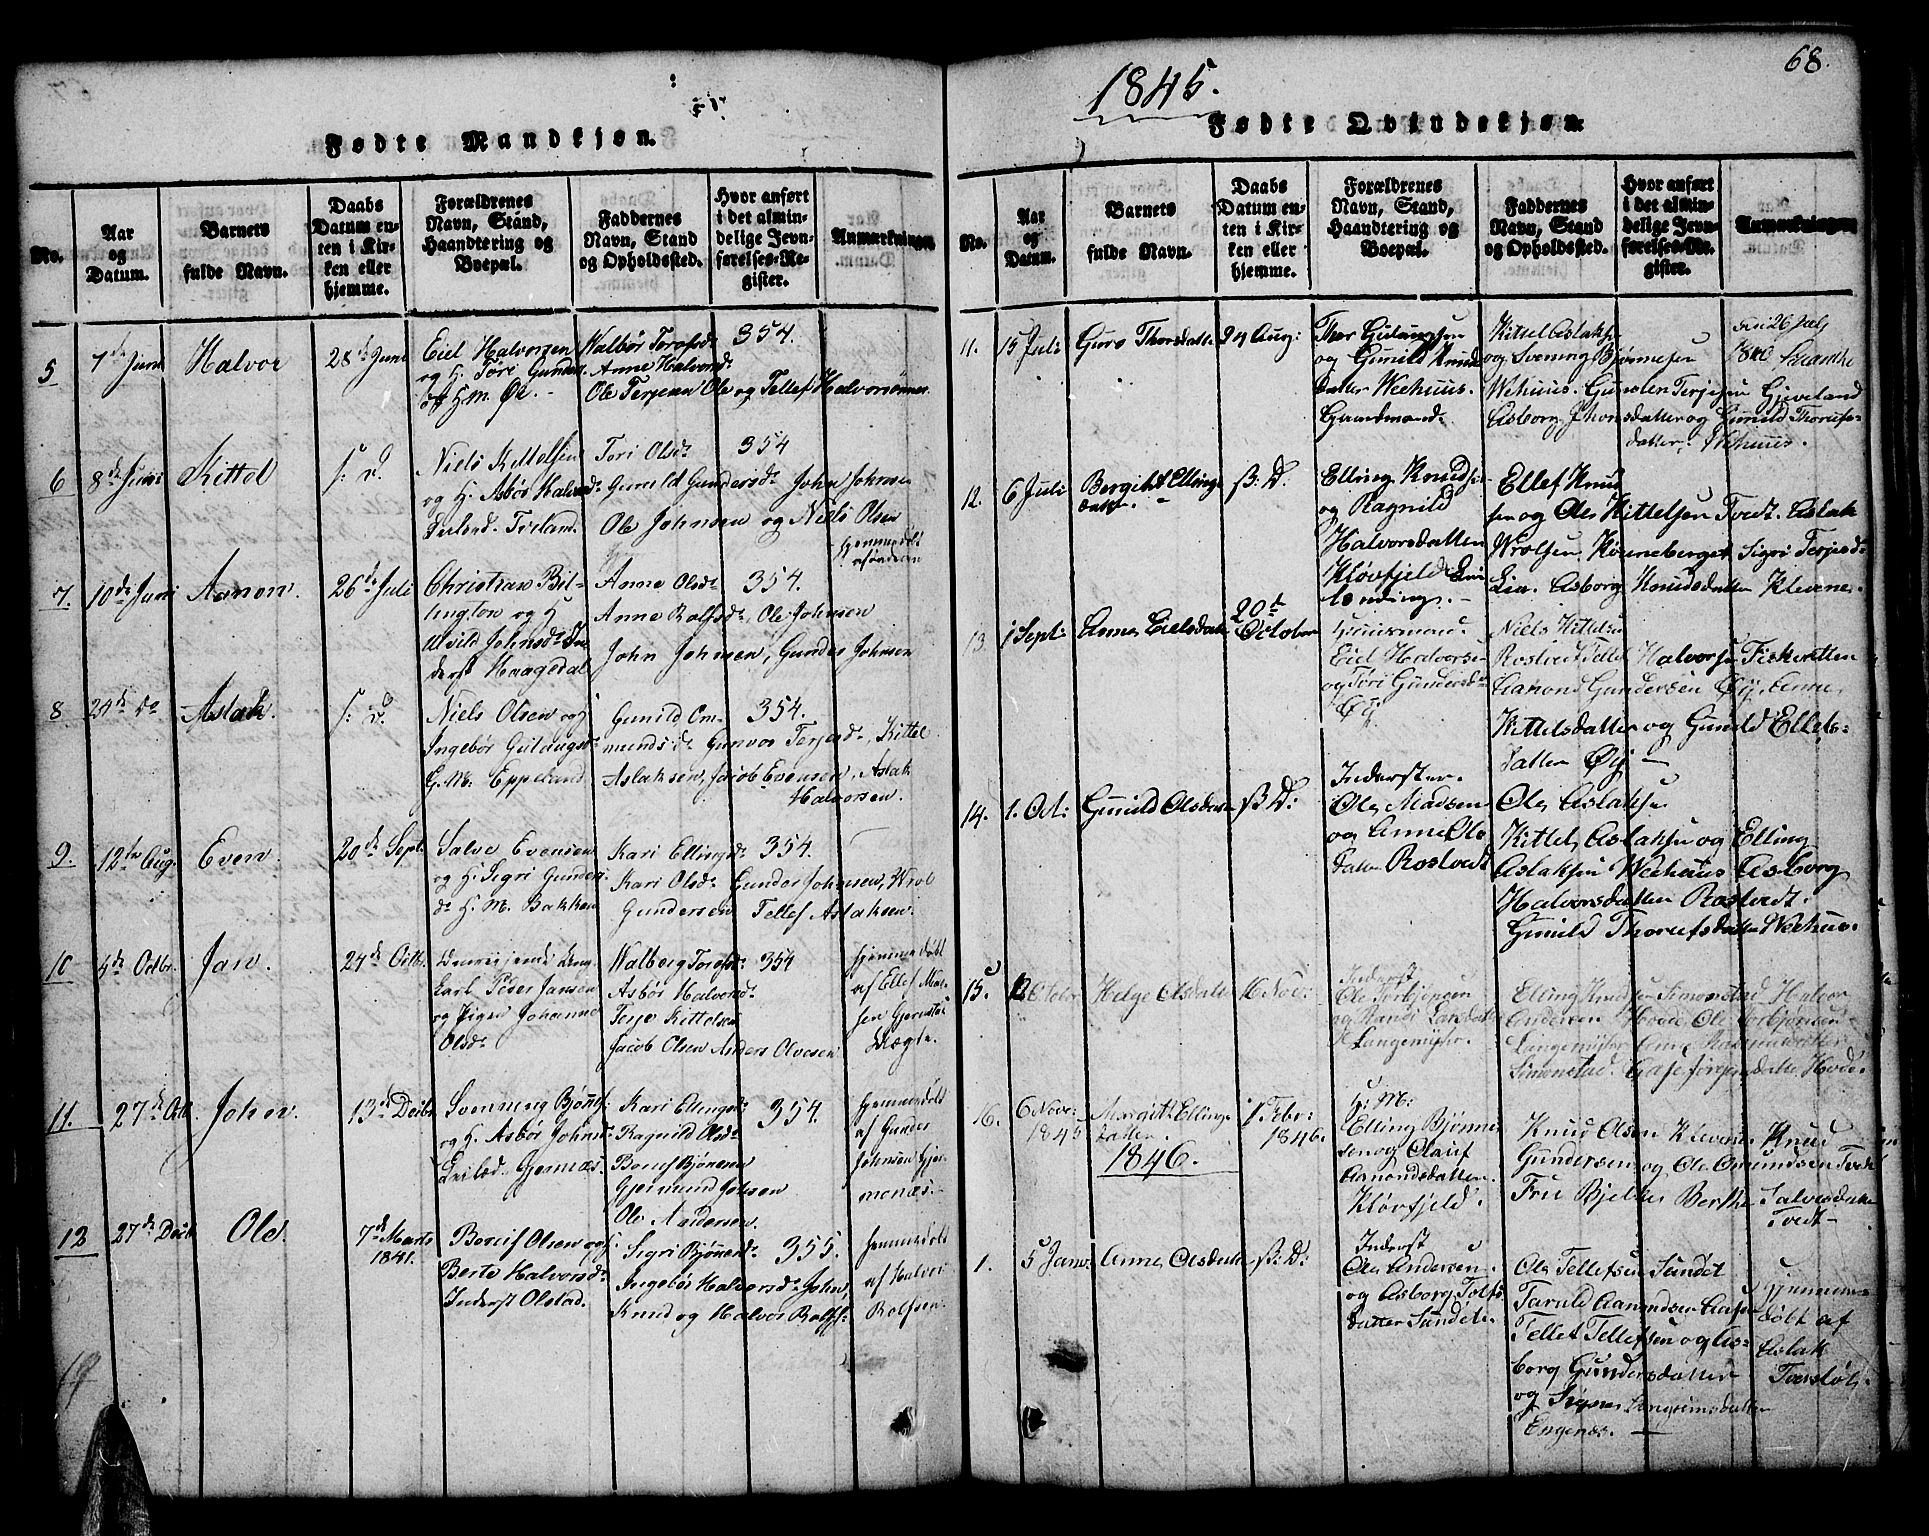 68.
1845.
Fødte Mandkjøn.
No.
Aar og Datum.
Barnets fulde Navn.
Daabs Datum enten i Kirken eller hjemme.
Forældrenes Navn, Stand, Haandtering og Boepæl.
Faddernes Navn, Stand og Opholdssted.
Hvor anført i det almindelige Jevnførelses-Register.
Anmærkninger.
5 7de Juni Halvor 28de Juni
Eiel Halvorsen
og H. Töri Gunders
G. M. Øi.
Walbør Torosd.
Anne Halvorsd.
Ole Terjesen Ole og Tellef Halvorsønner
354.
6 8de Juni Kittel s. D.
Niels Kittelsen
og H. Asbør Halvorsd.
Tveland.
Tori Olsdr.
Gunild Gundersdr. John Johnsen
Ole Johnsen og Niels Olsen
354
7. 10de Juni Aanon. 26de Juli
Christian Bil-
lington og H.
Alvild Johnsdr. In-
derst Haagedal
Anne Olsdr
Anne Rolfsdr, Ole Johnsen
John Johnsen, Gunder Johnsen
354.
Hjemmedøbt
8 24de Do Aslak. s. D.
Niels Olsen og H.
Ingebör Gulaugsdr
G. M. Eppeland
Gunild Om-
mundsdr Gunvor Terjesdr, Kittel
Aslaksen, Jacob Evensen, Aslak
Halvorsen.
354.
9. 12te Aug. Even 20de Sept.
Salve Evensen
og H. Sigri Gunders
dr G. M. Bakken
Kari Ellingsdr
Kari Olsdr Gunder Johnsen, Wrol
Gundersen Tellef Aslaksen.
354.
10 4de Octbr. Jan. 24de Octbr.
Carl Peder Jansen
og Pigen Johanne
Olsdr
Walborg Torosdr
Asbör Halvorsdr
Terje Kittelsen
Jacob Olsen Anders Olvesen
354
Hjemmedøbt
af Ellef Mad-
sen Gjernstøl
Uægte.
11. 27de Octb. Johen 13de Decbr.
Svenning Björns.
og H. Asbör Johns.
Gjernæs.
Kari Ellingsdr
Ragnild Olsdr
Boruf Bjönsen
Gjermund Johsen
Ole Andersen.
354.
Hjemmedøbt
af Gunder
Johnsen Gjer-
menæs.
12 27de Decb. Ole. 7de Marts
1841.
Boruf Olsen og H.
Berte Halvorsdr
Inderst Olstad.
Sigri Bjönsdr
Ingebör Halvorsdr John,
Knud og Halvor Rolfs.
355.
Hjemmedøbt
af Halvor
Rolfsen.
Fødte Qvindekjøn.
No.
Aar og Datum.
Barnets fulde Navn.
Daabs Datum enten i Kirken eller hjemme.
Forældrenes Navn, Stand, Haandtering og Boepæl.
Faddernes Navn, Stand og Opholdssted.
Hvor anført i det almindelige Jevnførelses-Register.
Anmærkninger.
11. 15 Juli Guro Thorsdatter 24 Aug:
Thor Gulaugsen
og Gunild Knuds
datter Weehuus.
Gaardmand.
Kittel Aslaksen
og Svenning Bjørnesen
Wehuus. Gunsten Terjesen Gjeveland
Asborg Jhonsdatter og Gunild Thorufs-
datter. Wehuus.
den 26 Juli
12. 6 Juli Bergith Ellings
datr. S: D.
Elling Knudsen
og Ragnild
Halvorsdatter
Kløvfjeld
Ellef Knud
sen og Ole Kittelsen Tvedt. Aslak
Wrolsen Kønneberget Sigri Terjesdr
Lien. Asborg Knudsdatter Klevene.
13. 1 Sept: Anne Eielsdatter 20de October
Huusmand.
Eiel Halvorsen
og Töri Gundersdr
Øij.
Niels Kittelsen
Rostvedt Tellef Halvorsen Fiskeretten
Aamond Gundersen Øij Anne
Kittelsdatter og Gunild Ellefs-
datter Øij
14. 1. Oct: Gunild Olsdatter S: D:
Inderster.
Ole Madsen
og Anne Ols
datter Rostvedt
Ole Aslaksen
Kittel Aslaksen og Elling
Aslaksen Weehuus Asborg
Halvorsdatter Rostvedt.
Gunild Thorufsdatter Weehuus.
15. 12 October Helge Olsdatter 16 Nov:
Inderst
Ole Torbjørnsen
og Randi Larsdatter
Langemyhr.
Elling Knudsen Simonstad Halvor
Andersen Hovde Ole Torbjørnsen
Langemyhr Anne Rasmusdatter
Simonstad. Aase Jørgensdatter Hovde.
16. 6 Nov: 1845 Margith Ellings
datter. 1 Febr: 1846.
G: M:
Elling Bjønne
sen og Olauf
Aamondsdatter
Kløvfjeld.
Knud Olsen Klevene Knud
Gundersen og Ole Omundsen Tvedt
Fru Bjelke Berthe Salvesdatter
Tvedt
1846.
1. 5 Janv: Anne Olsdatter S: D:
Inderst
Ole Andersen
og Asborg Tolfs
datter Sundet.
Ole Tellefsen Sundet
Taruld Aamundsen Aasen
Tellef Tellefsen og As-
borg Gundersdatter
og Signe Langrimsdatter
Engenæs.
Hjemme
døbt af
Aslak
Tverstøl.